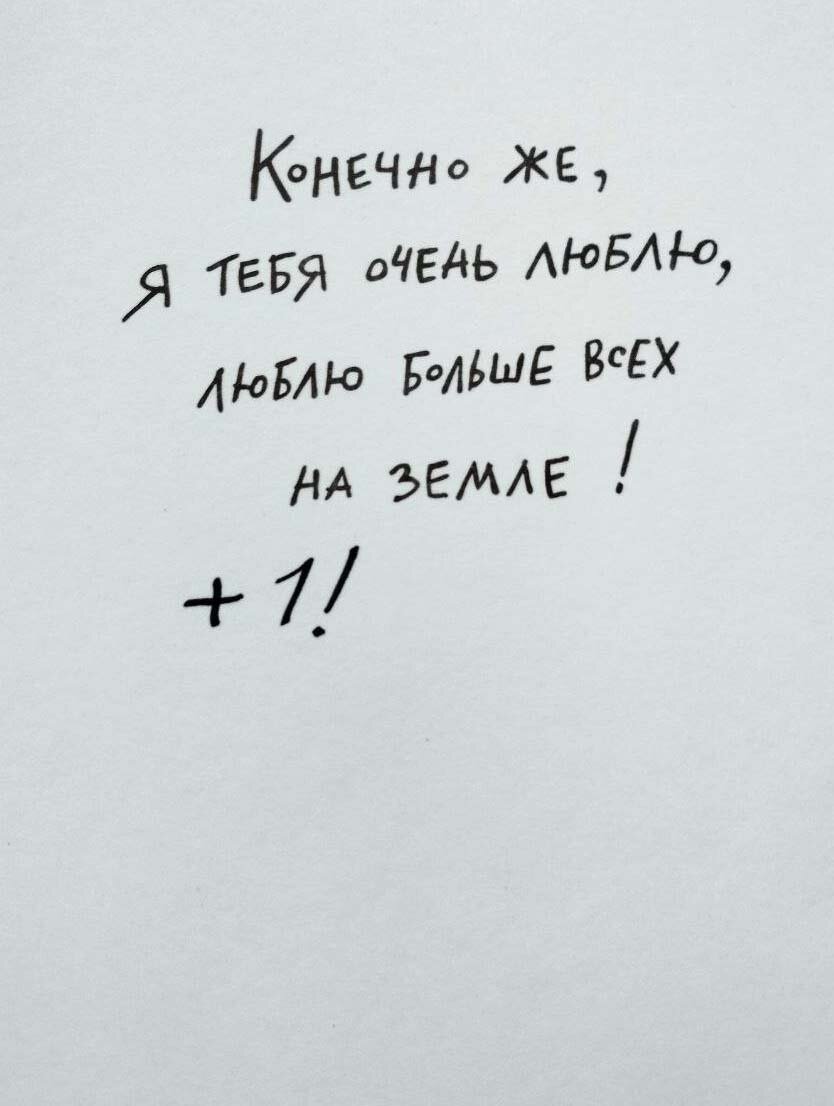 Конечно же,
я тебя очень люблю,
люблю больше всех
на земле!
+1!